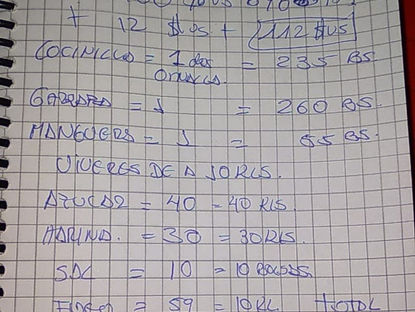 + 12 $us + 112 $us
COCINILLA = 1 dos = 235 BS.
GARRAFA = 1 = 260 BS.
MANGUERA = 1 = 55 BS.
VIVERES DE A
AZUCAR = 40 = 40 KLS.
HARINA. = 30 = 30 KLS.
SAL = 10 = 10 BOLSAS
= 59 = 10 KL TOTAL